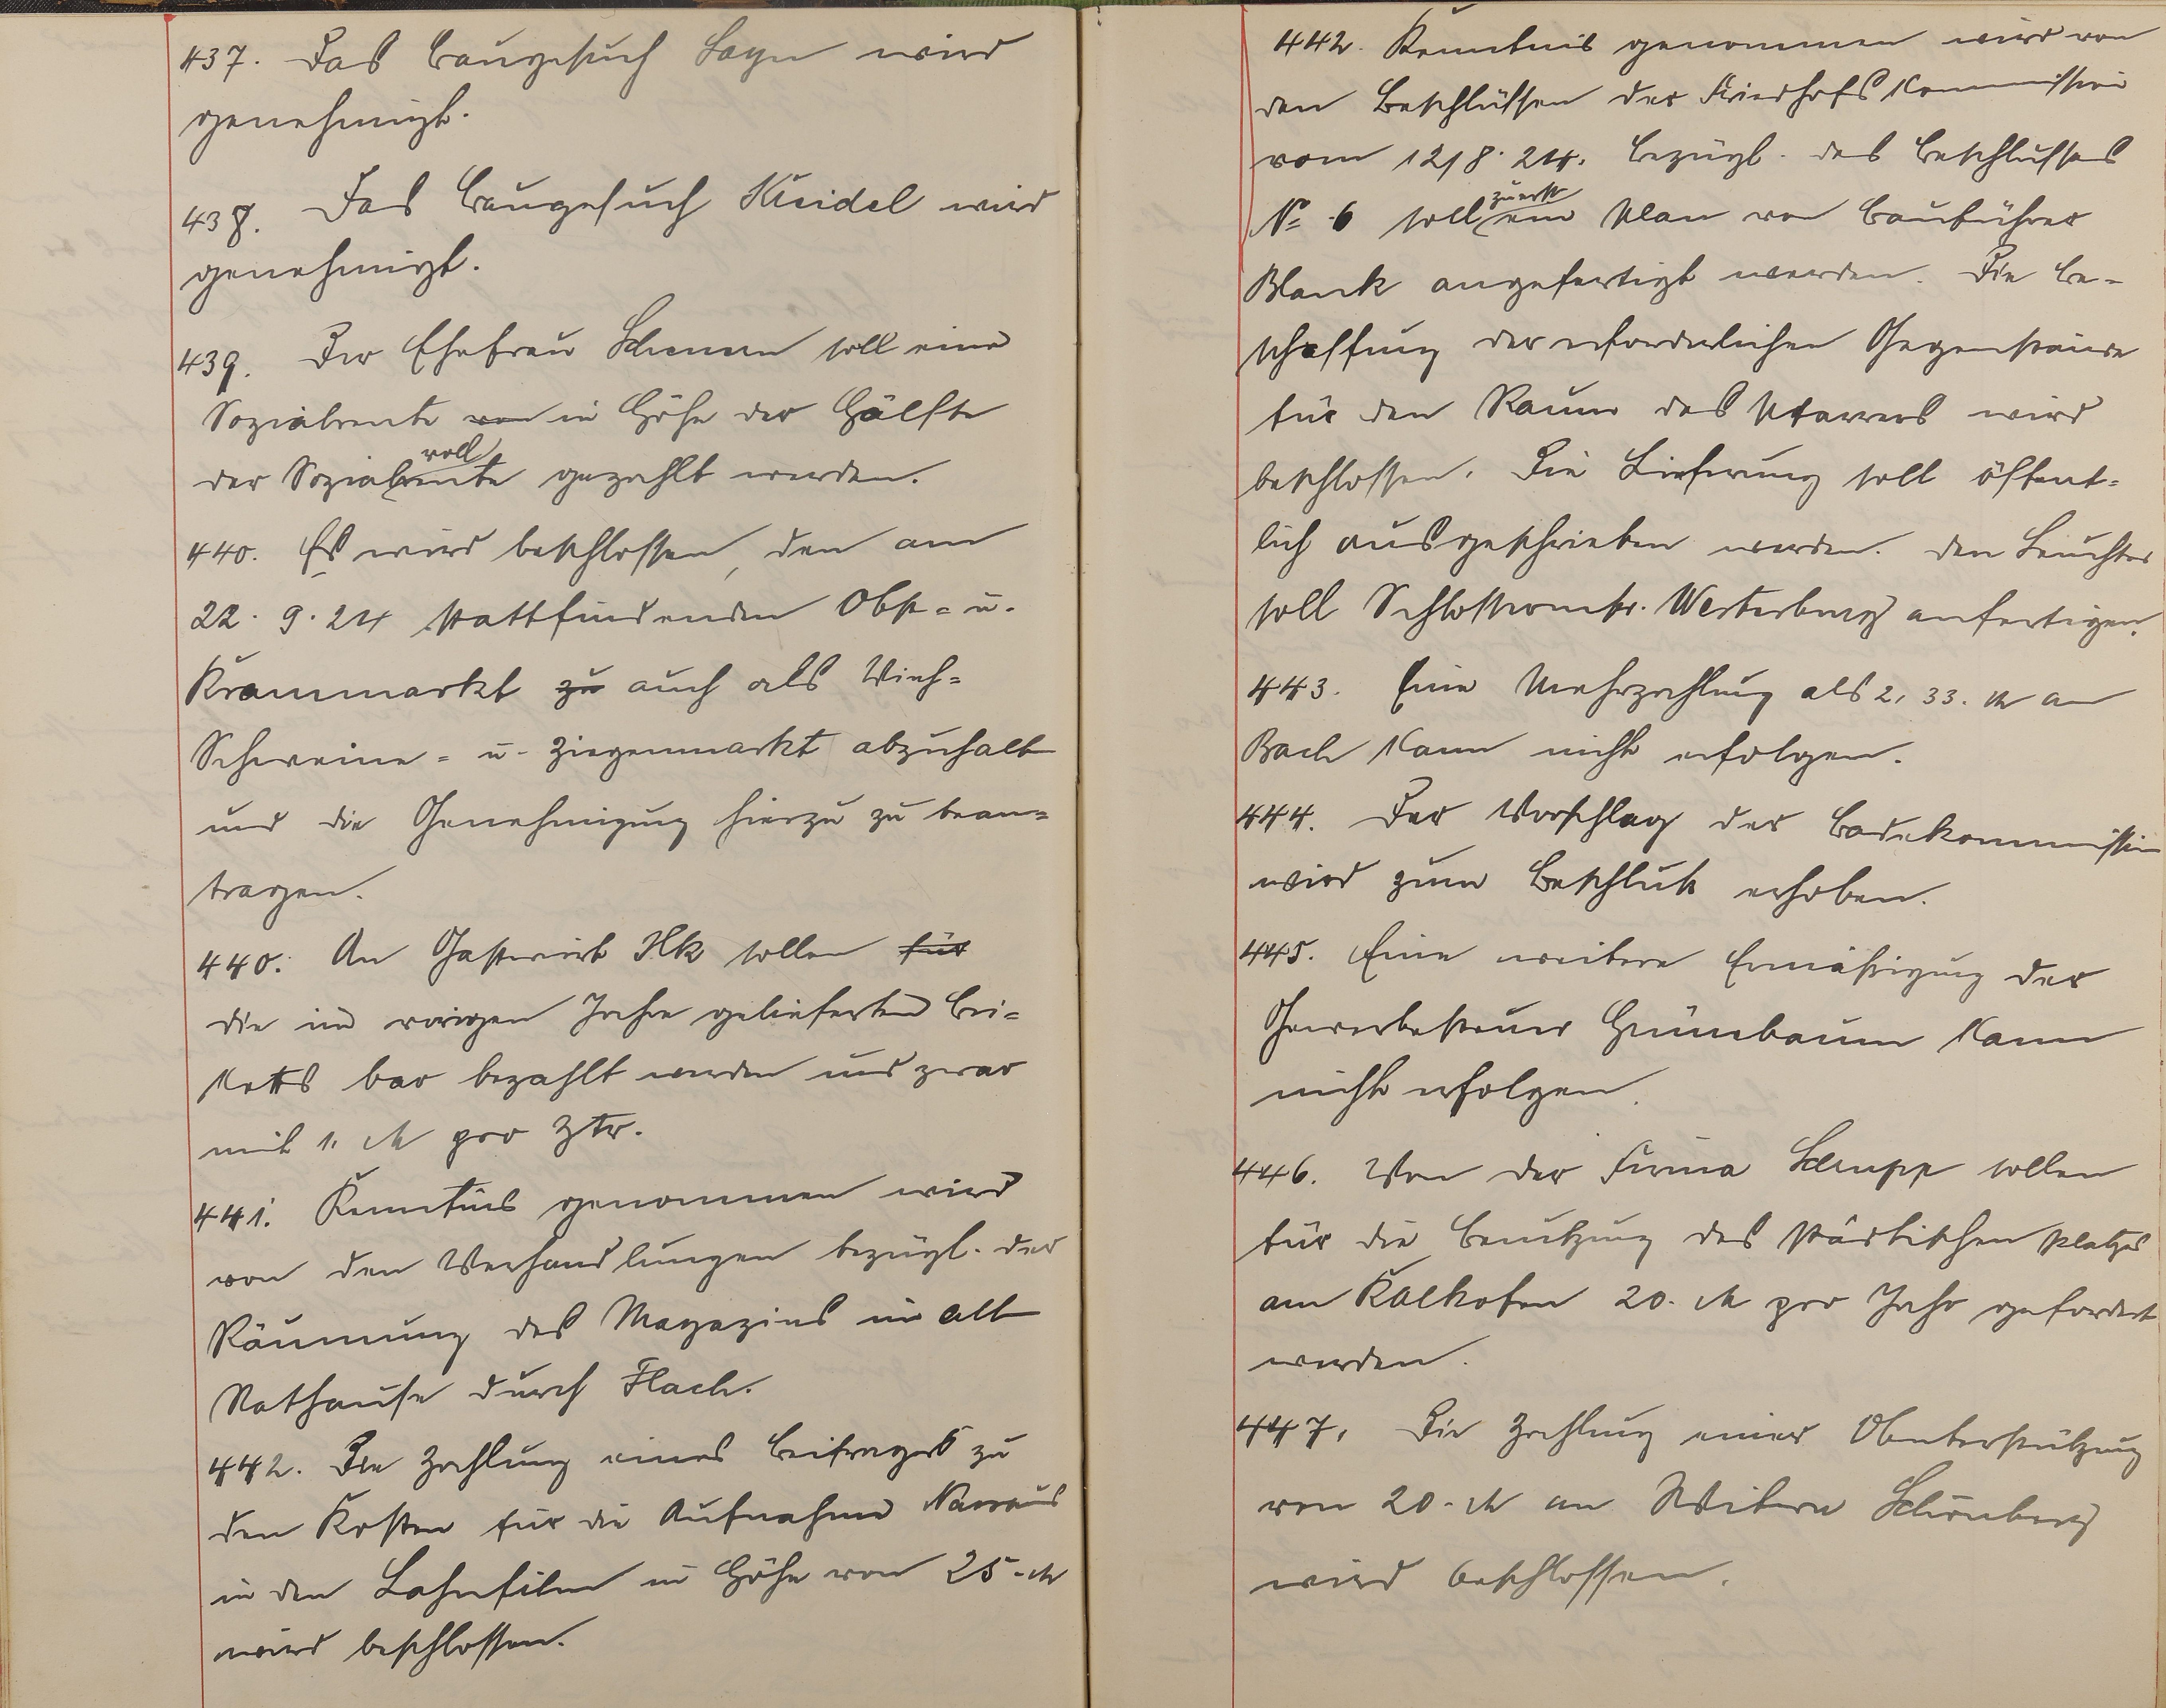 437. Das Baugesuch Sayn wird
genehmigt.
438. Das Baugesuch Kneidel wird
genehmigt.
439. Der Ehefrau soll eine
Sozialrente von in Höhe der Hälfte
voll
der Sozialrente gezahlt werden.
440. Es wird beschlossen, den am
22. 9. 24 stattfindenden Obst- u.
Krammarkt zu auch als Vieh-
Schweine- u. Ziegenmarkt abzuhalt
und die Genehmigung hierzu zu bean-
tragen.
440. An Gastwirt Ilk sollen für
die im vorigen Jahre gelieferten Bri-
ketts bar bezahlt werden und zwar
mit 1. M pro Ztr.
441. Kenntnis genommen wird
von den Verhandlungen bezügl. der
Räumung des Magazins im alt
Rathause durch Flach.
442. Die Zahlung eines Beitrages zu
den Kosten für die Aufnahme Nassaus
in den Lahnfilm in Höhe von 25.- M
wird beschlossen.
442. Kenntnis genommen wird von
den Beschlüssen der Friedhofs Kommission
vom 12/8. 24. Bezügl. des Beschlusses
zuerst
No 6 soll ein Plan von Bauführer
Blank angefertigt werden. Die Be-
schaffung der erforderlichen Gegenstände
für den Raum des Pfarrers wird
beschlossen. Die Lieferung soll öffent-
lich ausgeschrieben werden. Den Leuchter
soll Schlossermstr. Westerburg anfertigen.
443. Eine Mehrzahlung als 2,33. M an
Bach kann nicht erfolgen.
444. Der Vorschlag der Badekommission
wird zum Beschluß erhoben.
445. Eine weitere Ermäßigung der
Gewerbesteuer Grünbaum kann
nicht erfolgen.
446. Von der Firma Schrupp sollen
für die Benutzung des städtischen Platzes
am Kalkofen 20. M pro Jahr gefordert
werden.
447. Die Zahlung einer Unterstützung
von 20.- M an Witwe Schönberg
wird beschlossen.